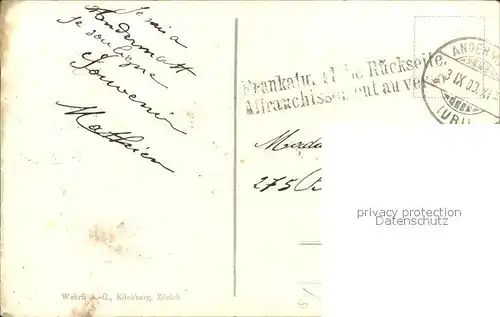 Je suis a
Andermatt
Je souligne
Souvenir
Mathieu
Frankatur siehe Rückseite.
Affranchissement au verso
ANDERM
IX
(URI)
275
privacy protection
Datenschutz
Wehrli A.-G., Kilchberg, Zürich